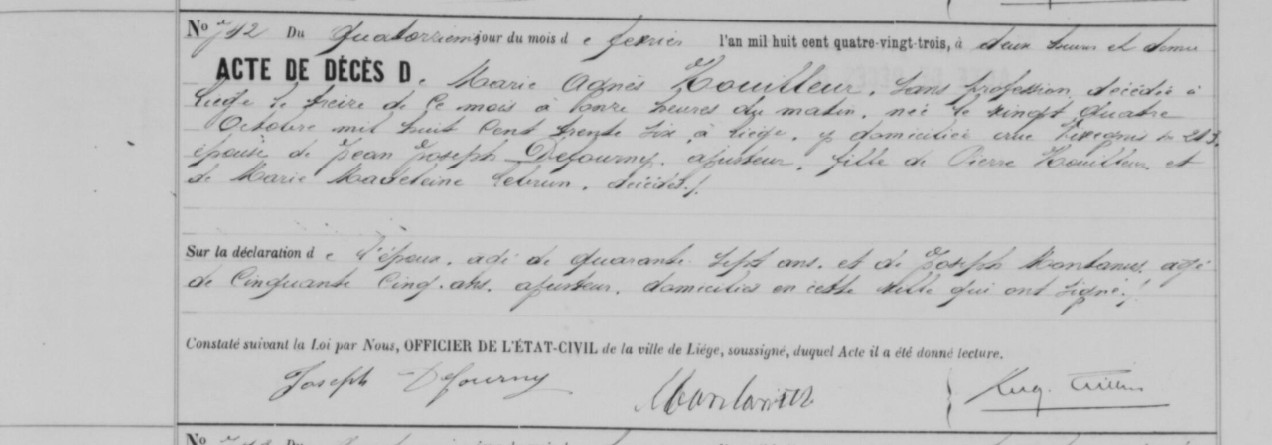 Nº 742 Du Quatorzième jour du mois de fevrier l'an mil huit cent quatre-vingt-trois, à deux heures et demie
ACTE DE DÉCÈS De Marie Agnès Houilleur, sans profession, décédée à
Liége le treize de ce mois à onze heures du matin, née le vingt quatre
Octobre mil huit cent trente six, à Liége, y domiciliée rue 213,
épouse de Jean Joseph Defourny, ajusteur, fille de Pierre Houilleur et
de Marie Madeleine Lebrun, décédés./.
Sur la déclaration de l'époux, agé de quarante sept ans, et de Joseph Montanus, agé
de cinquante cinq ans, ajusteur, domiciliés en cette ville qui ont signé./.
Constaté suivant la Loi par Nous, OFFICIER DE L'ÉTAT-CIVIL de la ville de Liége, soussigné, duquel Acte il a été donné lecture.
Joseph Defourny
Nº Du